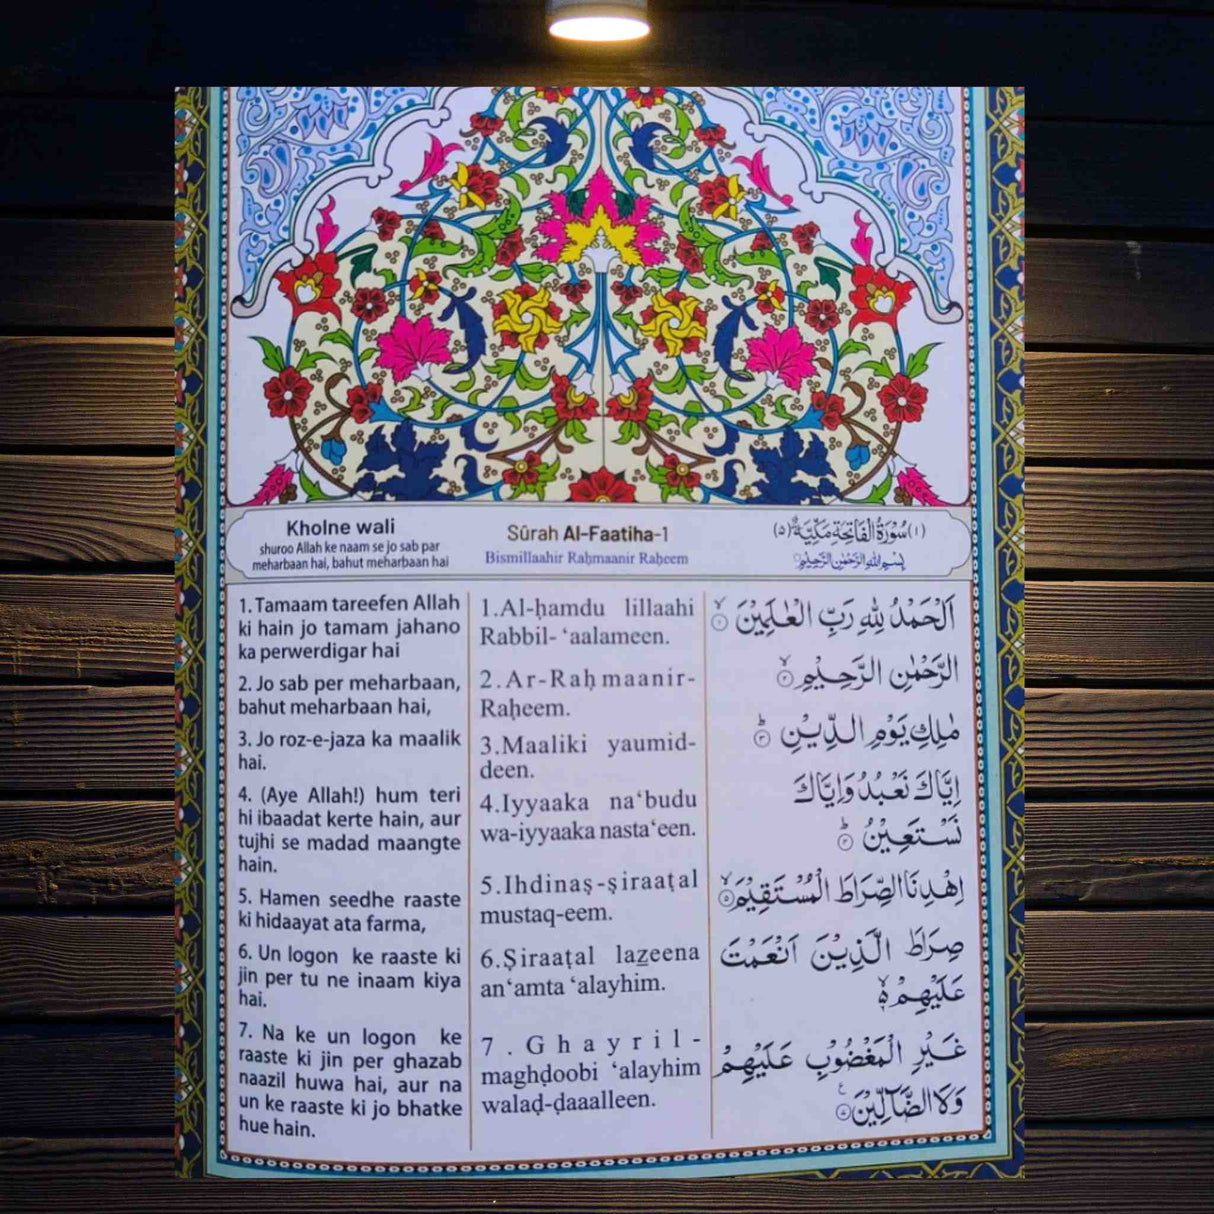 Kholne wali
shuroo Allah ke naam se jo sab par
meharbaan hai, bahut meharbaan hai
Sûrah Al-Faatiha-1
Bismillaahir Raḥmaanir Raḥeem
(۱) سُوْرَةُ الْفَاتِحَةِ مَكِّيَّةٌ (۵)
بِسْمِ اللهِ الرَّحْمٰنِ الرَّحِيْمِ
1. Tamaam tareefen Allah
ki hain jo tamam jahano
ka perwerdigar hai
2. Jo sab per meharbaan,
bahut meharbaan hai,
3. Jo roz-e-jaza ka maalik
hai.
4. (Aye Allah!) hum teri
hi ibaadat kerte hain, aur
tujhi se madad maangte
hain.
5. Hamen seedhe raaste
ki hidaayat ata farma,
6. Un logon ke raaste ki
jin per tu ne inaam kiya
hai.
7. Na ke un logon ke
raaste ki jin per ghazab
naazil huwa hai, aur na
un ke raaste ki jo bhatke
hue hain.
1.Al-ḥamdu lillaahi
Rabbil- ‘aalameen.
2.Ar-Raḥmaanir-
Raḥeem.
3.Maaliki yaumid-
deen.
4.Iyyaaka na‘budu
wa-iyyaaka nasta‘een.
5.Ihdinaṣ-ṣiraaṭal
mustaq-eem.
6.Ṣiraaṭal lazeena
an‘amta ‘alayhim.
7.Ghayril-
maghḍoobi ‘alayhim
walaḍ-ḍaaalleen.
اَلْحَمْدُ لِلّٰهِ رَبِّ الْعٰلَمِيْنَ ۙ‏۱
الرَّحْمٰنِ الرَّحِيْمِ ۙ‏۲
مٰلِكِ يَوْمِ الدِّيْنِ ؕ‏۳
اِيَّاكَ نَعْبُدُ وَاِيَّاكَ
نَسْتَعِيْنُ ؕ‏۴
اِهْدِنَا الصِّرَاطَ الْمُسْتَقِيْمَ ۙ‏۵
صِرَاطَ الَّذِيْنَ اَنْعَمْتَ
عَلَيْهِمْ ۙ۬ۦ
غَيْرِ الْمَغْضُوْبِ عَلَيْهِمْ
وَلَا الضَّآلِّيْنَ ‏۷